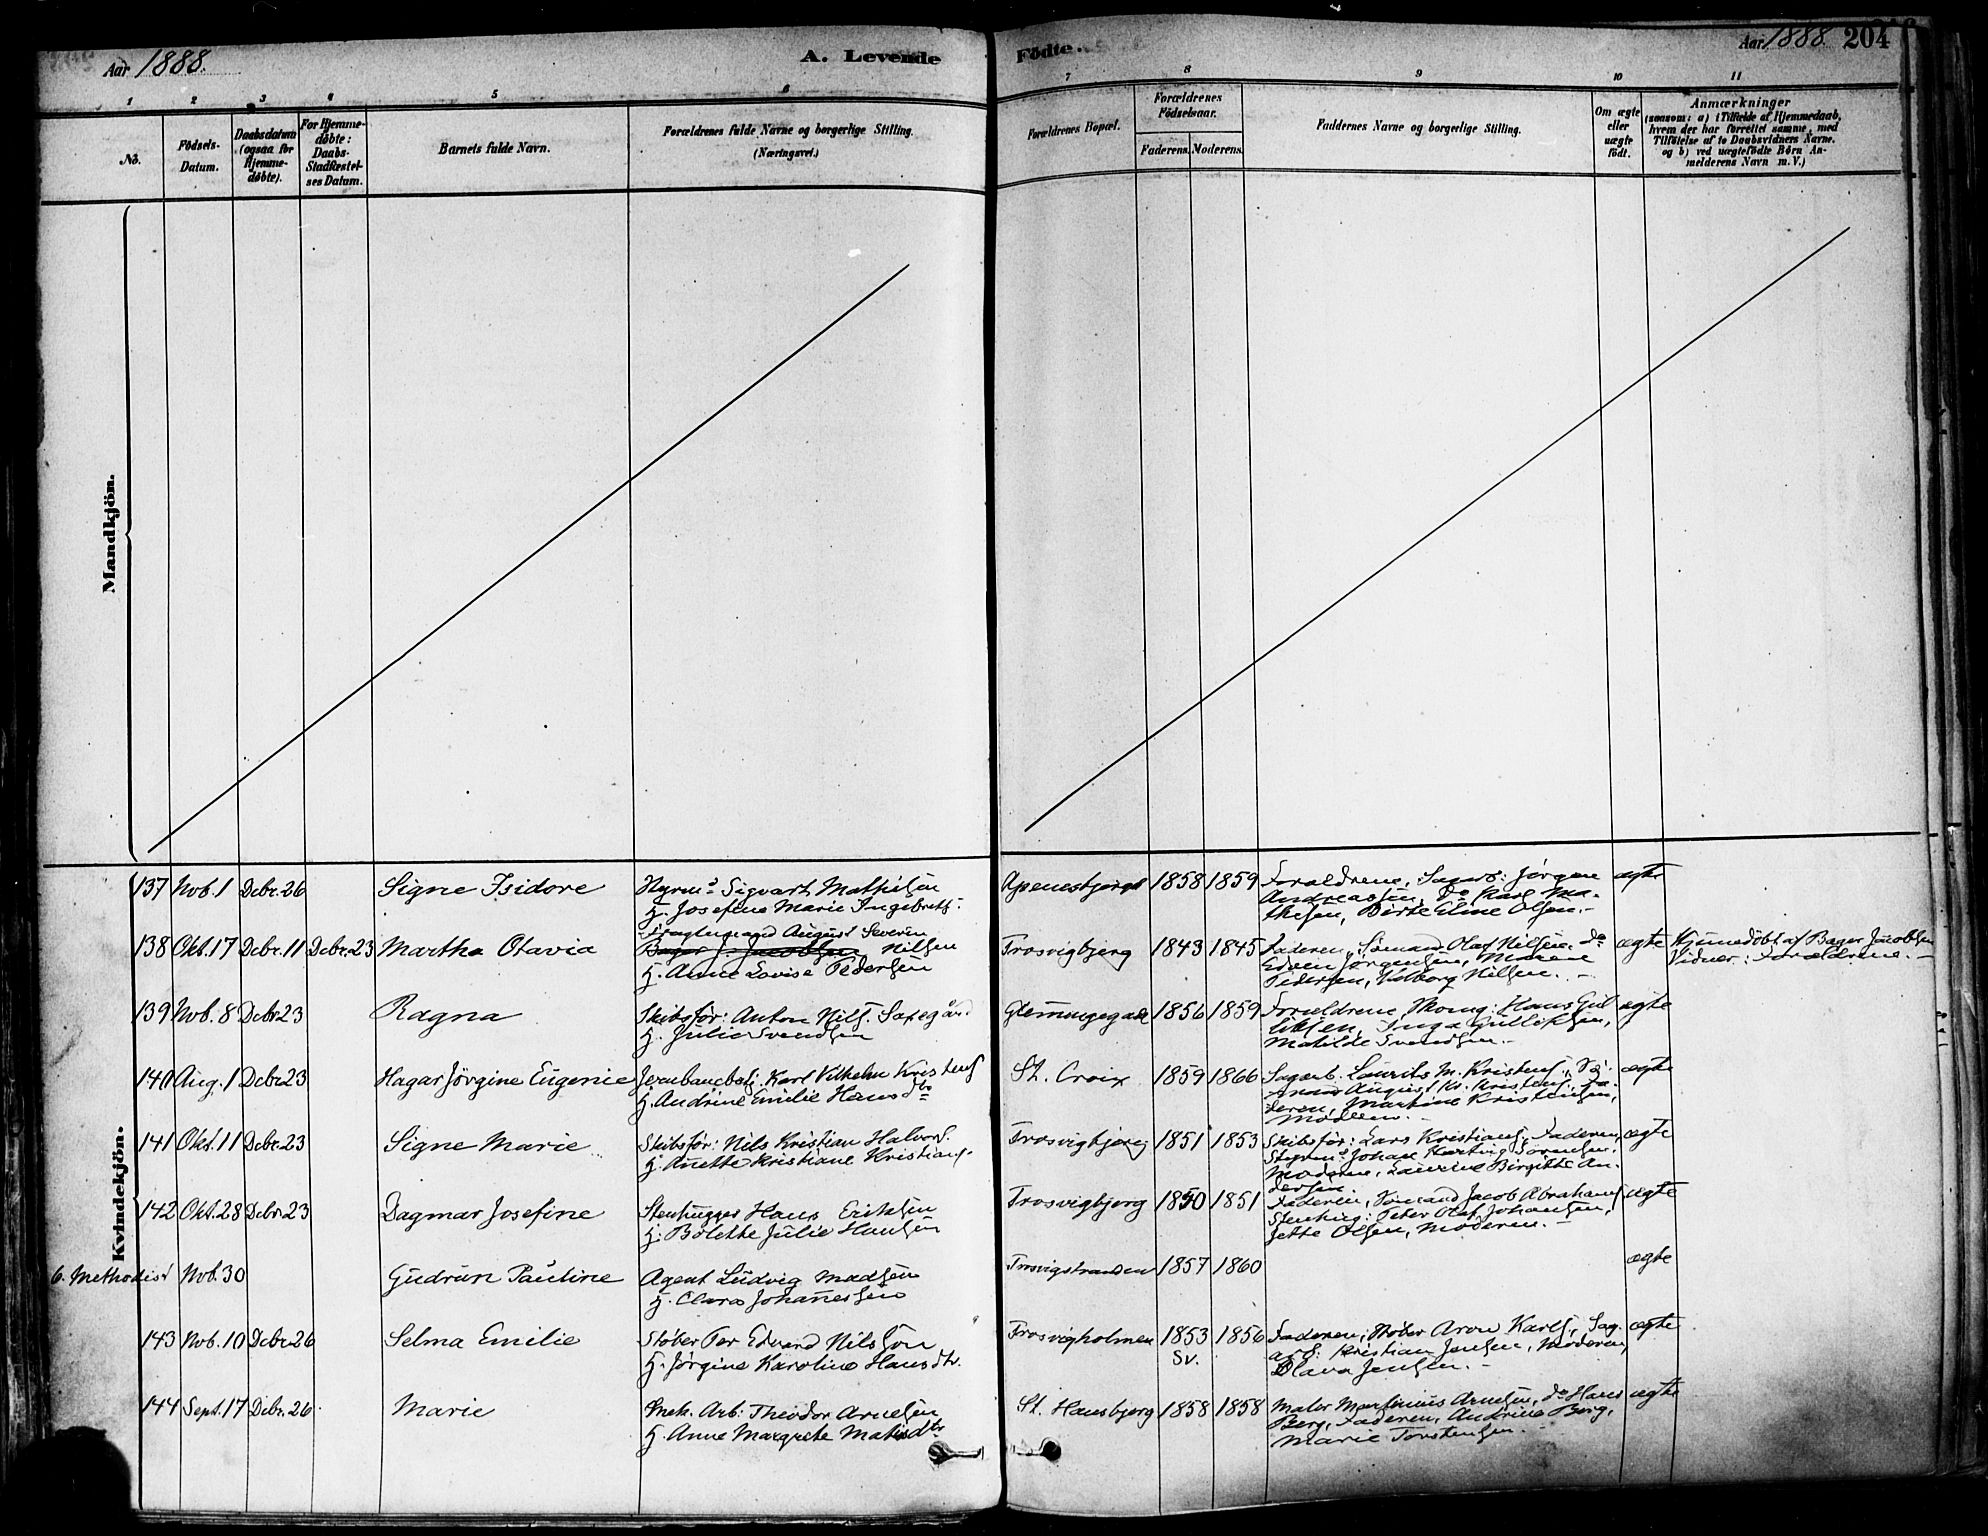 Aar 1888.
A. Levende
Fødte.
Aar 1888. 204
1 2 3 4 5 6 7 8 9 10 11
No.
Fødsels-
Datum.
Daabsdatum
(ogsaa for
Hjemme-
døbte).
For Hjemme-
døbte:
Daabs-
Stadfæstel-
ses Datum.
Barnets fulde Navn.
Forældrenes fulde Navne og borgerlige Stilling.
(Næringsvei.)
Forældrenes Bopæl.
Forældrenes
Fødselsaar.
Faderens. Moderens.
Faddernes Navne og borgerlige Stilling.
Om ægte
eller
uægte
født.
Anmærkninger
(saasom: a) i Tilfælde af Hjemmedaab,
hvem der har forrettet samme, med
Tilføielse af to Daabsvidners Navne.
og b) ved uægtefødte Børn An-
melderens Navn m. V.)
Mandkjön.
Kvindekjön.
137 Nob. 1 Debr. 26 Signe Isidore
Styrmd Sigvart Mathisen
H. Josefine Marie Ingebrets.
Apenesbjerget 1858 1859
Forældrene, Sagarb: Jørgen
Andreassen, Do Karl Ma-
thesen, Birte Eline Olsen.-
ægte
138 Okt. 17 Debr. 11 Debr. 23 Martha Otavia
Fragtemand August Severin
Bager J. Jacobsen Nilsen
H. Anne Lovise Pedersen
Trosvigbjerg 1843 1845
Faderen, Sømand Olaf Nilsen, do
Edven Jørgensen, Marene
Pedersen, Valborg Nilsen. -
ægte
Hjemmedöbt af Bager Jacobsen
Vidner: Forældrene. -
139 Nob. 8 Debr 23 Ragna
Skibsfør: Anton Nils. Saxegård
H. Julie Svendsen
Glemmegade 1856 1859
Forældrene, Skomg: Hans Gul
liksen, Inga Gulliksen,
Matilde Svendsen.-
ægte
140 Aug. 1 Debr 23 Hagar Jörgine Eugenie
Jernbanebetj. Karl Vilhelm Kristens
H. Andrine Emilie Hansdtr
St. Croix 1859 1866
Sagarb. Laurits M. Kristens, Sø-
mand August Kr. Kristens, Fa-
deren, Martine Kristensen,
Moderen.-
ægte
141 Okt. 11 Debr. 23 Signe Marie
Skibsfør: Nils Kristian Halvors.
H. Anette Kristiane Kristians.
Trosvigbjerg 1851 1853
Skibsfør: Lars Kristians, Faderen,
Styrmd Johan Martin Sørensen,
Moderen, Laurine Birgitte An-
dersen
ægte
142 Okt. 28 Debr. 23 Dagmar Josefine
Stenhugger Hans Eriksen
H. Bolette Julie Hansen
Trosvigbjerg 1850 1851
Faderen, Sømand Jacob Abrahams
Stenhug: Peter Olaf Johansen,
Jette Olsen, Moderen. -
ægte
6. Methodist Nob. 30 Gudrun Pauline
Agent Ludvig Madsen
H. Clara Johannesen
Trosvigstranden 1857 1860
ægte
143 Nob. 10 Debr 26 Selma Emilie
Støber Per Edvard Nilsson
H. Jørgine Karoline Hansdtr.
Trosvigholmen 1853 1856
Sv.
Faderen, Støber Aron Karls, Sag-
arb: Kristian Jensen, Moderen,
Olava Jensen. -
ægte
144 Sept. 17 Debr. 26 Marie
Mek. Arb: Theodor Arnesen
H. Anne Margrete Matisdtr
St. Hansbjerg 1858 1858
Maler Martinius Arnesen, do Hans
Berg, Faderen, Andrine Berg,
Marie Torstensen. -
ægte